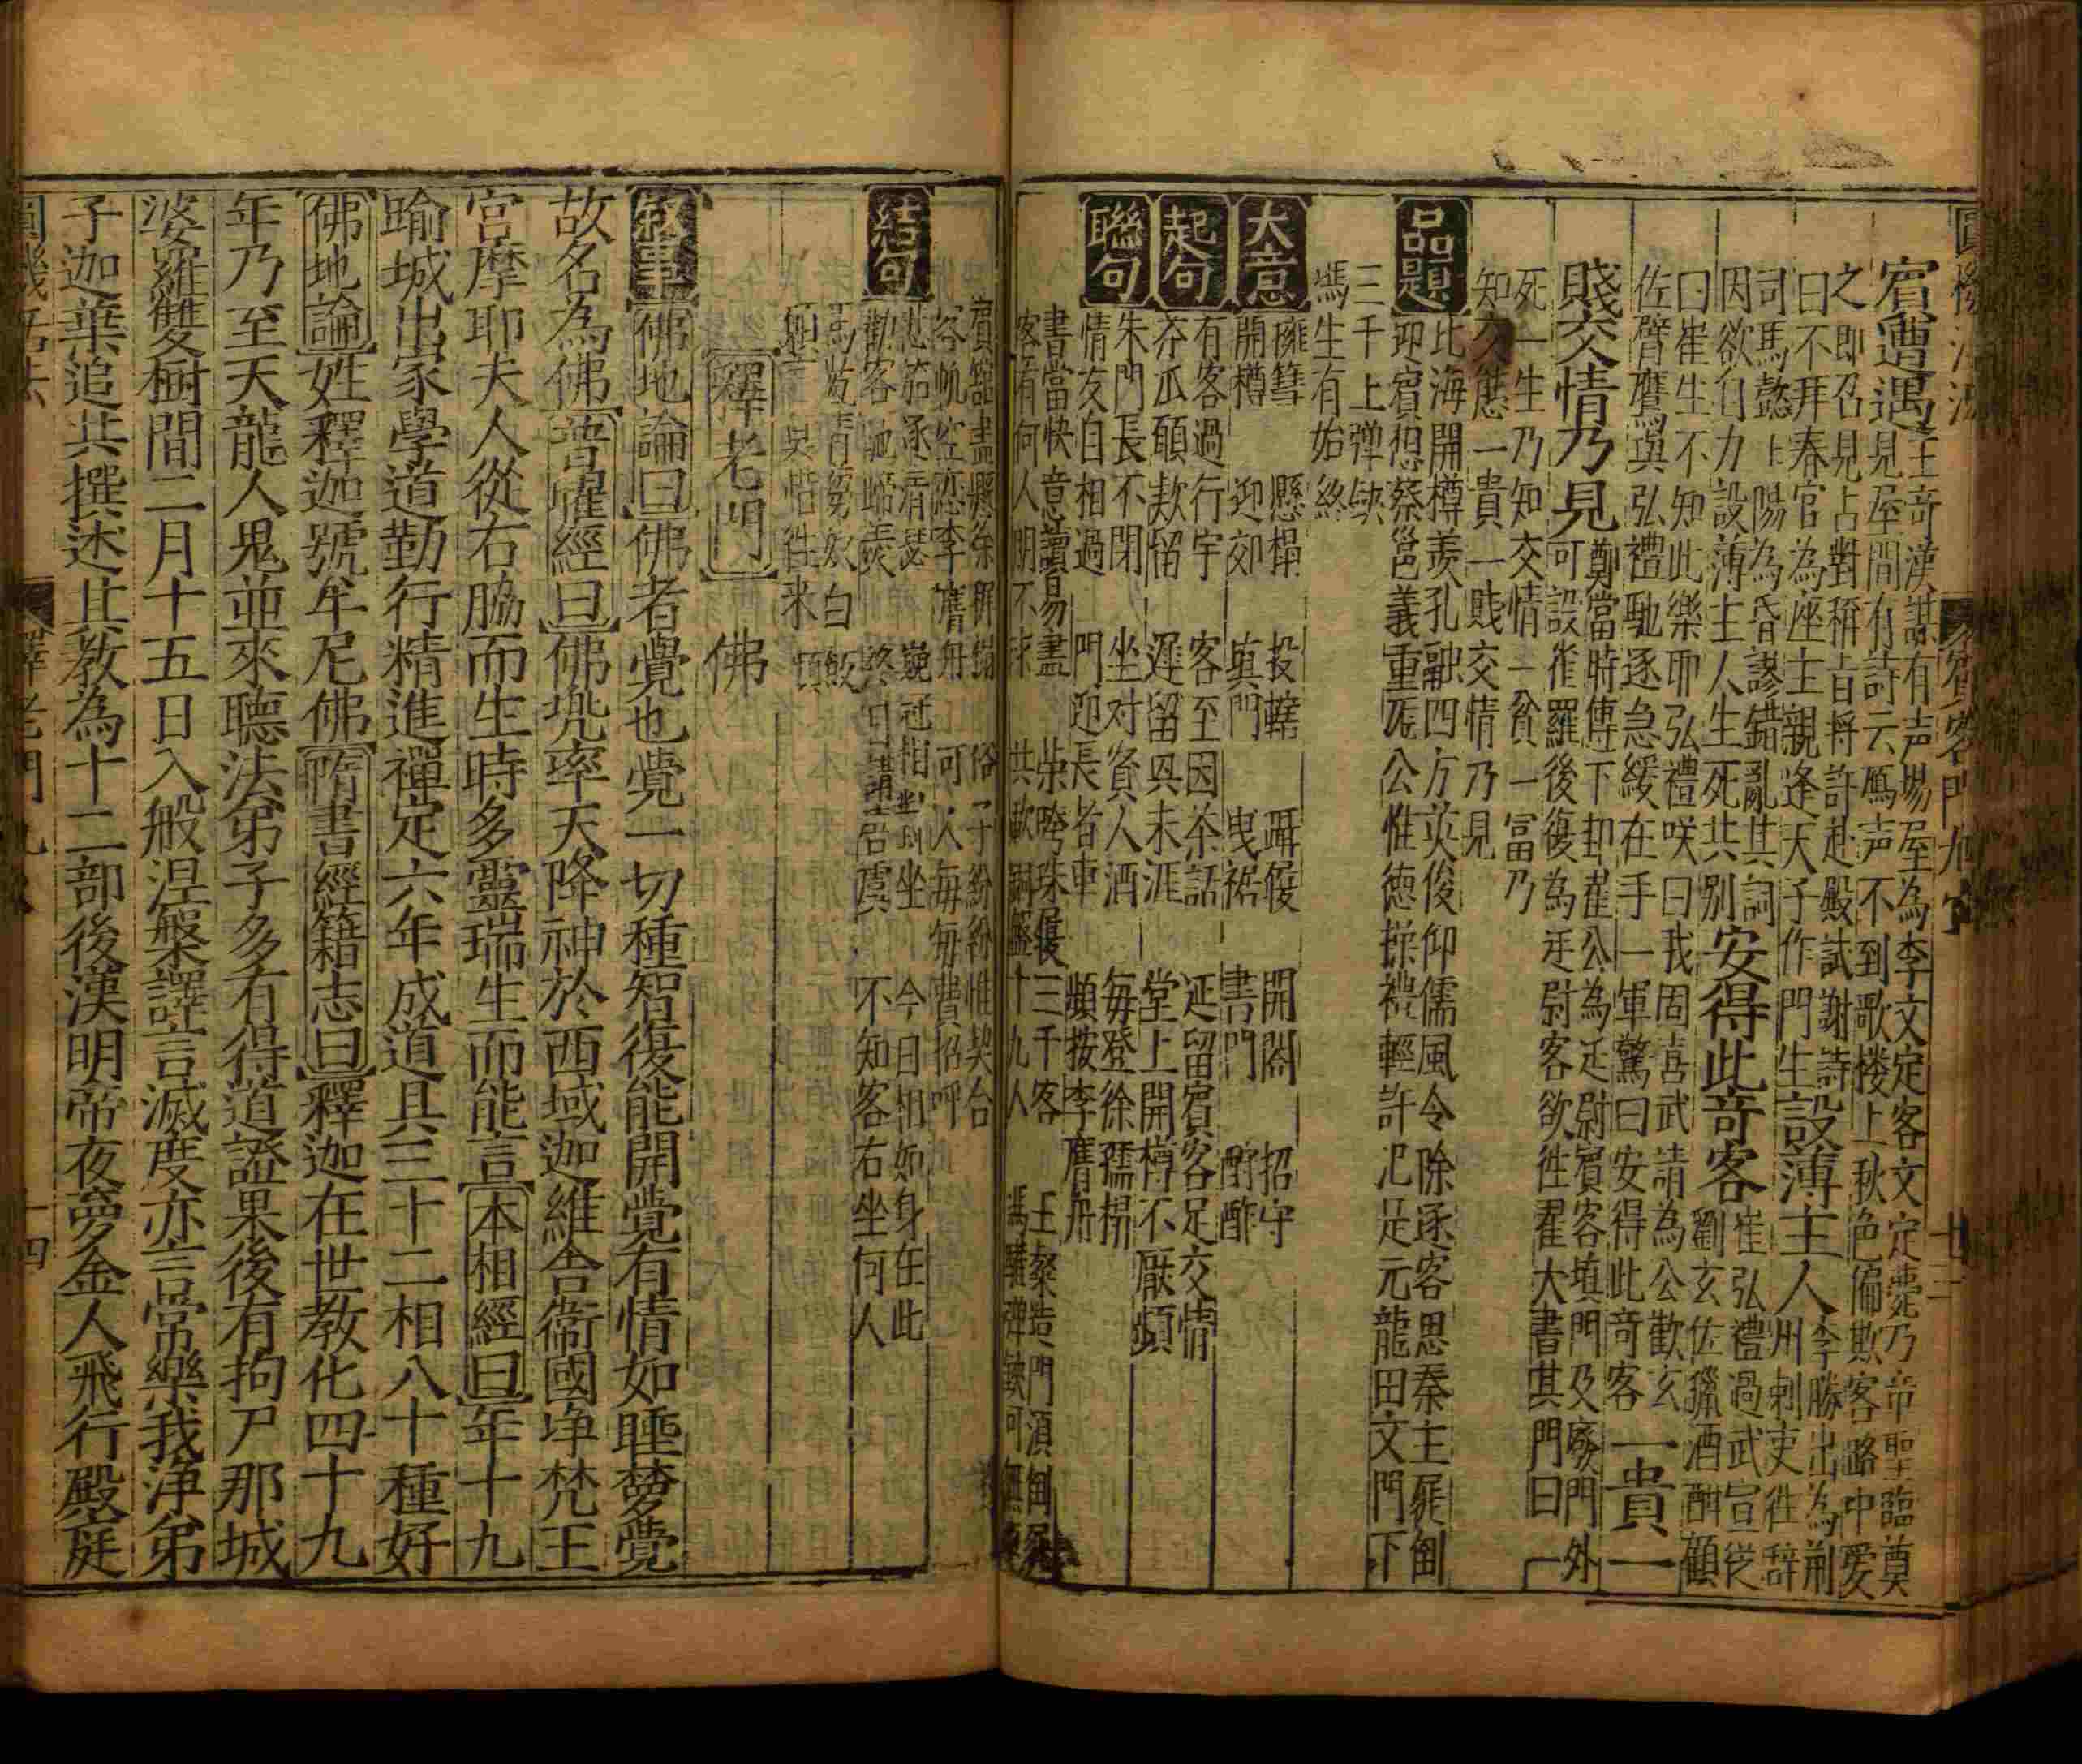 賓遭遇
王奇漢謀有声場屋為李文定客文定薨乃帝聖臨奠
見屋間有詩云鴈声不到歌楼上秋色偏欺客路中愛
之即召見占對稱旨将許赴殿試謝詩
曰不拜春官為座主親逢天子作門生
設薄主人
李勝出為荊
州刺吏徃辞
司馬懿上陽為昏謬錯亂其詞
因欲自力設薄主人生死共別
安得此奇客
崔弘禮過武宣從
劉玄佐獵酒酣顧
曰崔生不知此樂耶弘禮咲曰我固喜武請為公歡玄
佐臂鷹與弘禮馳逐急緩在手一軍驚曰安得此奇客
一貴一
賤交情乃見
鄭當時傳下邽翟公為廷尉賓客填門及廢門外
可設雀羅後復為廷尉客欲徃翟大書其門曰一
死一生乃知交情一貧一富乃
知交態一貴一賎交情乃見
品題
北海開樽羨孔融四方英俊仰儒風令除逐客思秦主屣倒
迎賓想蔡邕義重厖公惟徳操禮輕許汜是元龍田文門下
三千上弹鋏
馮生有始終
大意
擁篲 懸榻 投轄 躡履 開閤 招守
開樽 迎郊 填門 曳裾 書門 酧酢
起句
有客過行宇 客至因茶話 延留賓客足交情
夯瓜願欵留 遲留興未涯 堂上開樽不厭頻
聯句
朱門長不閉 坐对賓人酒 每登徐孺榻
情友自相過 門迎長者車 頻按李膺舟
書當快意讀易盡 柴跨珠履三千客 王粲造門湏倒屣
客有何人期不來 共歃銅盤十九人 馮驩彈鋏可無魚
賓筵盡懸徐穉榻 俗子紛紛惟契合
客帆空恋李膺舟 可人每每費招呼
結句
巍冠相對坐 今日相如身在此
勸客 終日講唐虞 不知客右坐何人
釋老門
佛
叙事
佛地論曰佛者覺也覺一切種智復能開覺有情如睡夢覺
故名為佛普曜經曰佛兠率天降神於西域迦維舎衞國净梵王
宮摩耶夫人從右脇而生時多靈瑞生而能言本相經曰年十九
踰城出家學道勤行精進禪定六年成道具三十二相八十種好
佛地論姓釋迦號牟尼佛隋書經籍志曰釋迦在世教化四十九
年乃至天龍人鬼並來聽法弟子多有得道證果後有拘尸那城
婆羅雙樹間二月十五日入般涅槃譯言滅度亦言常樂我浄弟
子迦葉追共撰述其教為十二部後漢明帝夜夢金人飛行殿庭